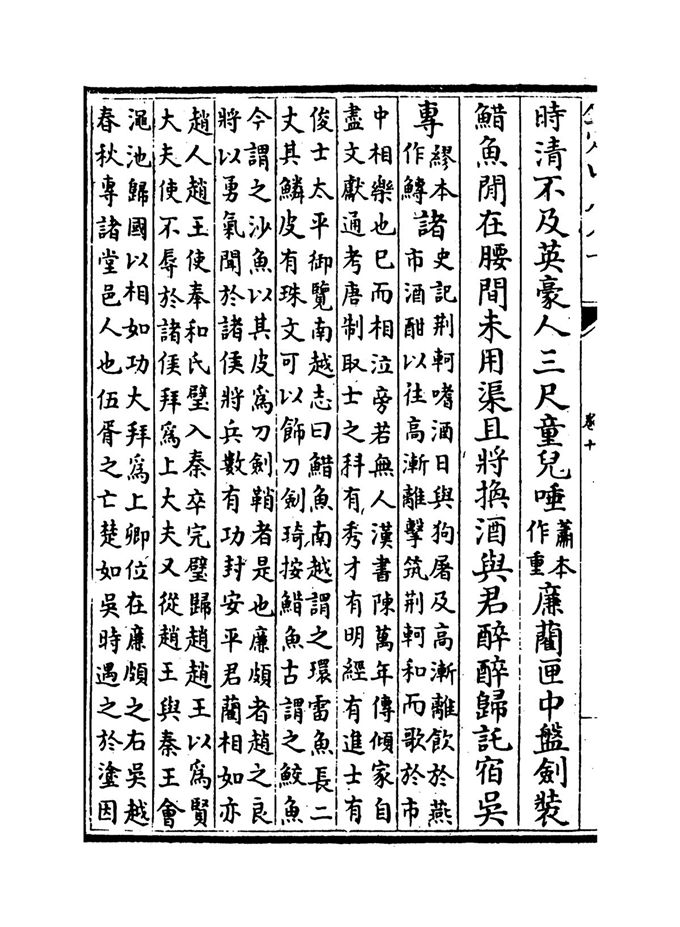 卷十
時清不及英豪人三尺童兒唾蕭本作重廉藺匣中盤劍裝
䱜魚閒在腰間未用渠且將換酒與君醉醉歸託宿吳
專繆本作鱄諸史記荆軻嗜酒日與狗屠及高漸離飲於燕
市酒酣以往高漸離擊筑荆軻和而歌於市
中相樂也已而相泣旁若無人漢書陳萬年傳傾家自
盡文獻通考唐制取士之科有秀才有明經有進士有
俊士太平御覽南越志曰䱜魚南越謂之環雷魚長二
丈其鱗皮有珠文可以飾刀劍琦按䱜魚古謂之鮫魚
今謂之沙魚以其皮爲刀劍鞘者是也廉頗者趙之良
將以勇氣聞於諸侯將兵數有功封安平君藺相如亦
趙人趙王使奉和氏璧入秦卒完璧歸趙趙王以爲賢
大夫使不辱於諸侯拜爲上大夫又從趙王與秦王會
澠池歸國以相如功大拜爲上卿位在廉頗之右吳越
春秋專諸堂邑人也伍胥之亡楚如吳時遇之於塗因